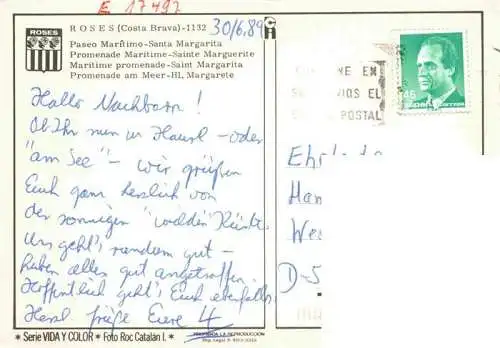 E 17497
ROSES (Costa Brava)-1132
30/6.89
ROSES
Paseo Marítimo-Santa Margarita
Promenade Maritime-Sainte Marguerite
Maritime promenade-Saint Margarita
Promenade am Meer-HL, Margarete
Hallo Nachbarn!
Ob Ihr nun im Hausl - oder
"am See" - wir grüßen
Euch ganz herzlich von
der sonnigen "wilden" Küste.
Uns geht's rundum gut -
haben alles gut angetroffen.
Hoffentlich geht's Euch ebenfalls
Grüße Eure 4
* Serie VIDA Y COLOR * Foto Roc Catalán I. *
PROHIBIDA LA REPRODUCCION
NE EN
VIOS EL
POSTAL
45
Ehr
Ham
We
D-5